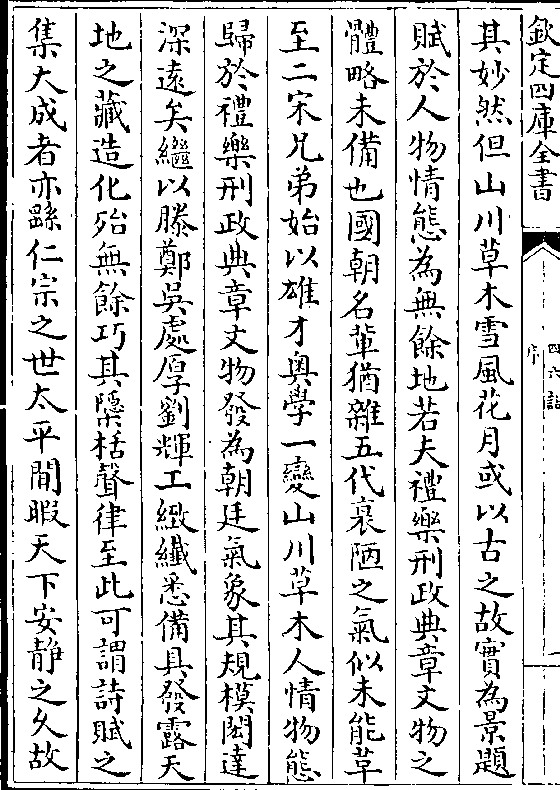 欽定四庫全書
四六話
序
其妙然但山川草木雪風花月或以古之故實為景題
賦於人物情態為無餘地若夫禮樂刑政典章文物之
體略未備也國朝名輩猶雜五代裒陋之氣似未能草
至二宋兄弟始以雄才奧學一變山川草木人情物態
歸於禮樂刑政典章文物發為朝廷氣象其規模閎達
深遠矣繼以滕鄭吳處厚劉輝工緻纖悉備具發露天
地之藏造化殆無餘巧其櫽栝聲律至此可謂詩賦之
集大成者亦繇仁宗之世太平閒暇天下安靜之久故